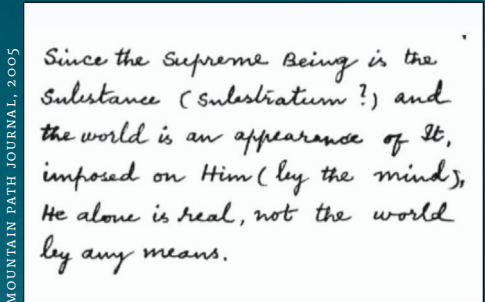 MOUNTAIN PATH JOURNAL, 2005
Since the Supreme Being is the
Substance (Substratum ?) and
the world is an appearance of It,
imposed on Him (by the mind),
He alone is real, not the world
by any means.